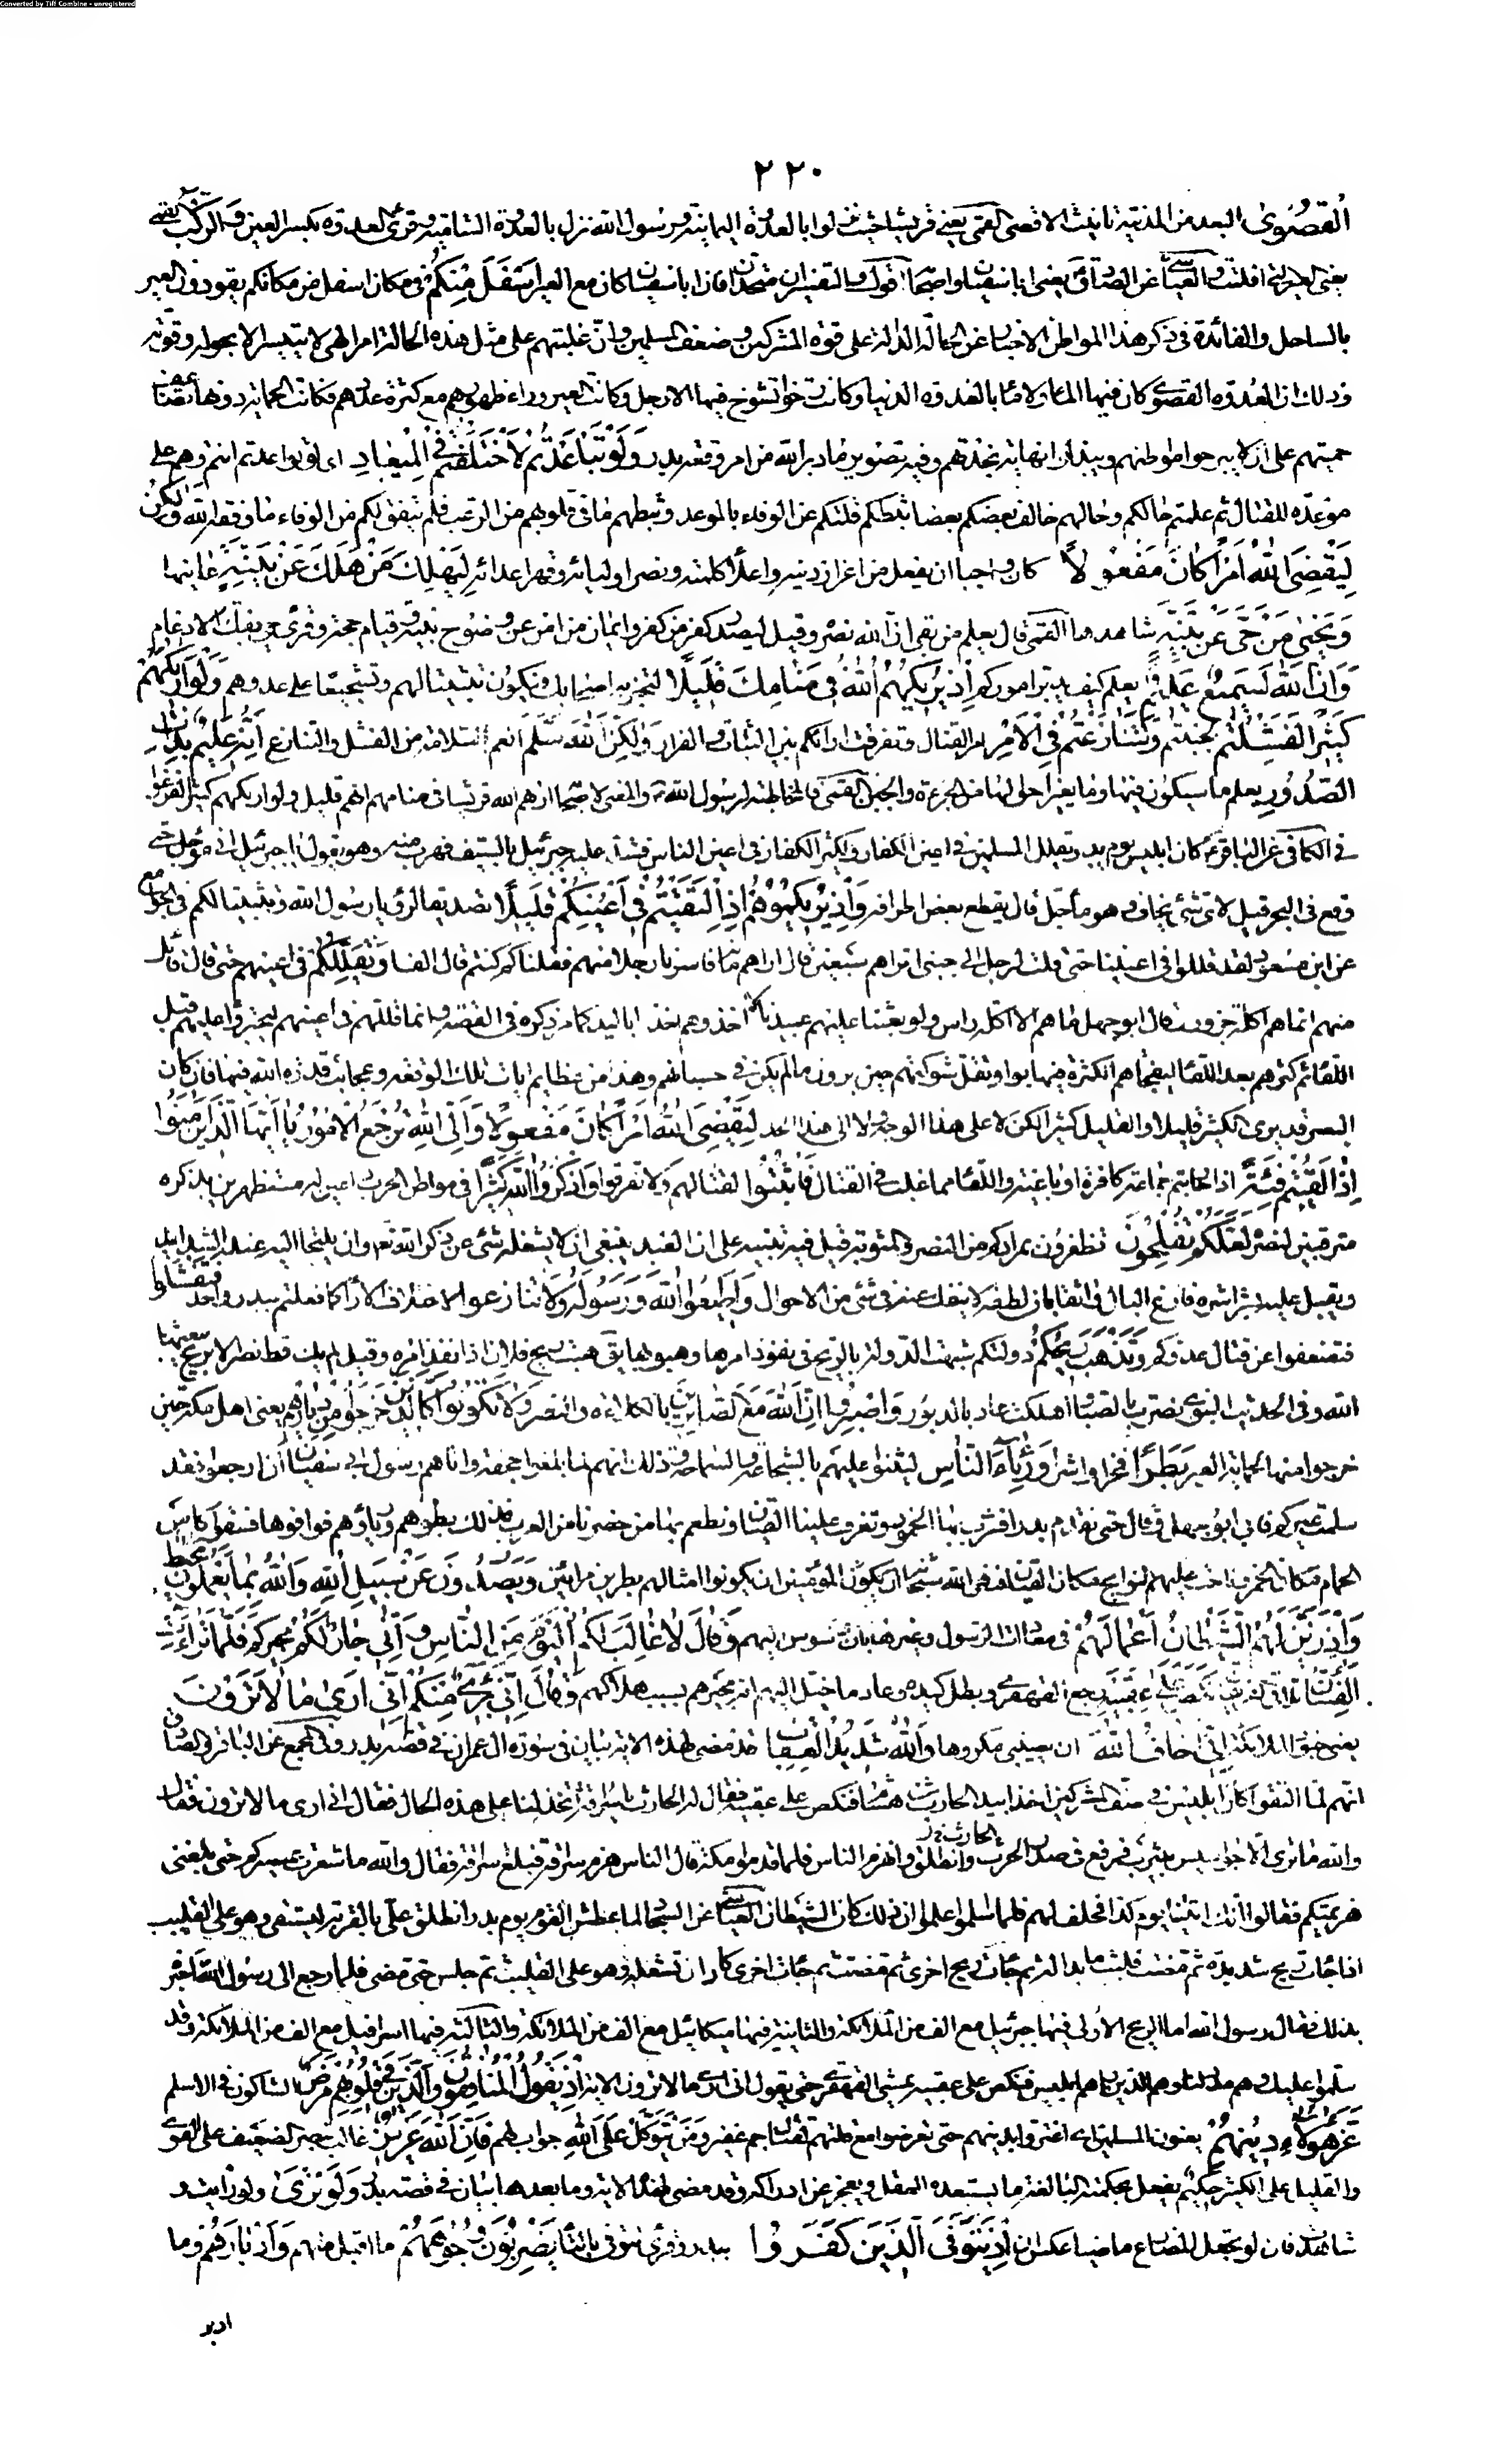 Converted by Tiff Combine - unregistered
٢٢٠
الْقُصْوٰى البعد من المدينة تانيث الاقصى القمى يعنى قريشا حيث نزلوا بالعدوة اليمانية ورسول الله نزل بالعدوة الشامية وقرئ العدوة بكسر العين وَالرَّكْبُ
يعنى العير التى افلتت والعياشى عن الصادق يعنى ابا سفيان واصحابه اقول والتفسيران متحدان فان ابا سفيان كان مع العير اَسْفَلَ مِنْكُمْ فى مكان اسفل من مكانكم يقودون العير
بالساحل والفائدة فى ذكر هذه المواطن الاخبار عن الحالة الدالة على قوة المشركين وضعف المسلمين وان غلبتهم على مثل هذه الحالة امر الهى لا يتيسر الا بحوله وقوته
وذلك ان العدوة القصوى كان فيها الماء ولا ماء بالعدوة الدنيا وكانت خوارا تسوخ فيها الارجل وكانت العير وراء ظهورهم مع كثرة عددهم فكانت الحماية دونها تضاعف
حميتهم على ان لا يبرحوا مواطنهم ويبذلوا نهاية نجدتهم وفيه تصوير ما دبر الله من امر وقعة بدر وَلَوْ تَوَاعَدْتُمْ لَاخْتَلَفْتُمْ فِى الْمِيعَادِ اى لو تواعدتم انتم وهم على
موعدة للقتال ثم علمتم حالكم وحالهم لخالف بعضكم بعضا ثبطكم قلتكم عن الوفاء بالموعد وثبطهم ما فى قلوبهم من الرعب فلم يتفق لكم من الوفاء ما وفقه الله وَلٰكِنْ
لِيَقْضِىَ اللهُ اَمْرًا كَانَ مَفْعُولًا كان واجبا ان يفعل من اعزاز دينه واعلاء كلمته ونصر اوليائه وقهر اعدائه لِيَهْلِكَ مَنْ هَلَكَ عَنْ بَيِّنَةٍ عاينها
وَيَحْيٰى مَنْ حَىَّ عَنْ بَيِّنَةٍ شاهدها القمى قال يعلم من بقى ان الله نصره وقيل ليصدر كفر من كفر وايمان من امن عن وضوح بينة وقيام حجة وقرئ حيى بفك الادغام
وَاِنَّ اللهَ لَسَمِيعٌ عَلِيمٌ يعلم كيف يدبر اموركم اِذْ يُرِيكَهُمُ اللهُ فِى مَنَامِكَ قَلِيلًا لتخبر به اصحابك فيكون تثبيتا لهم وتشجيعا على عدوهم وَلَوْ اَرٰيكَهُمْ
كَثِيرًا لَفَشِلْتُمْ لجبنتم وَلَتَنَازَعْتُمْ فِى الْاَمْرِ امر القتال وتفرقت اراؤكم بين الثبات والفرار وَلٰكِنَّ اللهَ سَلَّمَ انعم بالسلامة من الفشل والتنازع اِنَّهُ عَلِيمٌ بِذَاتِ
الصُّدُورِ يعلم ما سيكون فيها وما يغير احوالها من الجرءة والجبن القمى فالمخاطبة لرسول الله والمعنى لاصحابه اراهم الله قريشا فى منامهم انهم قليل ولو اريكهم كثيرا لفزعوا
فى الكافى عن الباقر كان ابليس يوم بدر يقلل المسلمين فى اعين الكفار ويكثر الكفار فى اعين الناس فشد عليه جبرئيل بالسيف فهرب منه وهو يقول يا جبرئيل انى مؤجل حتى
وقع فى البحر قيل لاى شئ يخاف وهو مأجل قال يقطع بعض اطرافه وَاِذْ يُرِيكُمُوهُمْ اِذِ الْتَقَيْتُمْ فِى اَعْيُنِكُمْ قَلِيلًا تصديقا لرؤيا رسول الله وتثبيتا لكم فى الجوامع
عن ابن مسعود لقد قللوا فى اعيننا حتى قلت لرجل الى جنبى اتراهم سبعين قال اراهم مائة فاسرنا رجلا منهم فقلنا كم كنتم قال الفا وَيُقَلِّلُكُمْ فِى اعينهم حتى قال قائل
منهم انما هم اكلة جزور قال ابو جهل ما هم الا اكلة راس ولو بعثنا عليهم عبيدنا لاخذوهم اخذا باليد كما مر ذكره فى القصة وانما قللهم فى اعينهم ليجترؤا عليهم قبل
اللقاء ثم كثرهم بعد اللقاء ليفجأهم الكثرة فيهابوا وتفل شوكتهم حين يرون ما لم يكن فى حسبانهم وهذا من عظايم ايات تلك الوقعة وعجايب قدرة الله فيها فان كان
البصر قد يرى الكثير قليلا والقليل كثيرا لكن لا على هذا الوجه ولا الى هذا الحد لِيَقْضِىَ اللهُ اَمْرًا كَانَ مَفْعُولًا وَاِلَى اللهِ تُرْجَعُ الْاُمُورُ يَا اَيُّهَا الَّذِينَ اٰمَنُوا
اِذَا لَقِيتُمْ فِئَةً اذا حاربتم جماعة كافرة او باغية واللقاء مما غلب فى القتال فَاثْبُتُوا لقتالهم ولا تفرقوا وَاذْكُرُوا اللهَ كَثِيرًا فى مواطن الحرب داعين له مستظهرين بذكره
مترقبين لنصره لَعَلَّكُمْ تُفْلِحُونَ تظفرون بمرادكم من النصر والمثوبة قيل فيه تنبيه على ان العبد ينبغى ان لا يشغله شئ عن ذكر الله تعالى وان يلتجأ اليه عند الشدايد
ويقبل عليه بشراشره فارغ البال واثقا بان لطفه لا ينفك عنه فى شئ من الاحوال وَاَطِيعُوا اللهَ وَرَسُولَهُ وَلَا تَنَازَعُوا باختلاف الاراء كما فعلتم ببدر واحد فَتَفْشَلُوا
فتضعفوا عن قتال عدوكم وَتَذْهَبَ رِيحُكُمْ دولتكم شبهت الدولة بالريح فى نفوذ امرها وهبوبها يقال هبت ريح فلان اذا نفذ امره وقيل لم يك قط نصر الا بريح يبعثها
الله وفى الحديث النبوى نصرت بالصبا واهلكت عاد بالدبور وَاصْبِرُوا اِنَّ اللهَ مَعَ الصَّابِرِينَ بالكلاءة والنصر وَلَا تَكُونُوا كَالَّذِينَ خَرَجُوا مِنْ دِيَارِهِمْ يعنى اهل مكة حين
خرجوا منها لحماية العير بَطَرًا فخرا واشرا وَرِئَاءَ النَّاسِ ليثنوا عليهم بالشجاعة والسماحة وذلك انهم لما بلغوا جحفة وافاهم رسول ابى سفيان ان ارجعوا فقد
سلمت عيركم فابى ابو جهل وقال حتى نقدم بدرا فنشرب بها الخمور وتعزف علينا القيان ونطعم بها من حضرنا من العرب فذلك بطرهم ورياؤهم فوافوها فسقوا كاس
الحمام مكان الخمر وناحت عليهم النوايح مكان القيان فنهى الله سبحانه ان يكون المؤمنين ان يكونوا امثالهم بطرين مرائين وَيَصُدُّونَ عَنْ سَبِيلِ اللهِ وَاللهُ بِمَا يَعْمَلُونَ مُحِيطٌ
وَاِذْ زَيَّنَ لَهُمُ الشَّيْطَانُ اَعْمَالَهُمْ فى معادات الرسول وغيرها بان وسوس اليهم وَقَالَ لَا غَالِبَ لَكُمُ الْيَوْمَ مِنَ النَّاسِ وَاِنِّى جَارٌ لَكُمْ مجيركم فَلَمَّا تَرَاءَتِ
الْفِئَتَانِ تلاقى الفريقان نَكَصَ عَلٰى عَقِبَيْهِ رجع القهقرى وبطل كيده وعاد ما خيل اليهم انه مجيرهم سبب هلاكهم وَقَالَ اِنِّى بَرِىءٌ مِنْكُمْ اِنِّى اَرٰى مَا لَا تَرَوْنَ
يعنى جنود الملائكة اِنِّى اَخَافُ اللهَ ان يصيبنى مكروها وَاللهُ شَدِيدُ الْعِقَابِ قد مضى لهذه الاية بيان فى سورة ال عمران فى قصة بدر وفى المجمع عن الباقر والصادق
انهم لما التقوا كان ابليس فى صف المشركين اخذا بيد الحارث بن هشام فنكص على عقبيه فقال له الحارث يا سراقة اتخذلنا على هذه الحال فقال انى ارى ما لا ترون فقال
والله ما نرى الا جواسيس يثرب فدفع فى صدر الحارث وانطلق وانهزم الناس فلما قدموا مكة قال الناس هزم سراقة فبلغ سراقة فقال والله ما شعرت بمسيركم حتى بلغنى
هزيمتكم فقالوا انك اتيتنا يوم كذا فحلف لهم فلما اسلموا علموا ان ذلك كان الشيطان العياشى عن السجاد لما عطش القوم يوم بدر انطلق على بالقربة ليستقى وهو على القليب
اذ جاءت ريح شديدة ثم مضت فلبث ما بدا له ثم جاءت ريح اخرى ثم مضت ثم جاءت اخرى كاد ان تشغله وهو على القليب ثم جلس حتى مضى فلما رجع الى رسول الله اخبره
بذلك فقال رسول الله اما الريح الاولى فيها جبرئيل مع الف من الملائكة والثانية فيها ميكائيل مع الف من الملائكة والثالثة فيها اسرافيل مع الف من الملائكة وقد
سلموا عليك وهم مدد لنا وهم الذين راهم ابليس فنكص على عقبيه يمشى القهقرى حتى يقول انى ارى ما لا ترون الاية اِذْ يَقُولُ الْمُنَافِقُونَ وَالَّذِينَ فِى قُلُوبِهِمْ مَرَضٌ الشاكون فى الاسلام
غَرَّ هٰؤُلَاءِ دِينُهُمْ يعنون المسلمين اى اغتروا بدينهم حتى تعرضوا مع قلتهم لقتال جم غفير وَمَنْ يَتَوَكَّلْ عَلَى اللهِ جواب لهم فَاِنَّ اللهَ عَزِيزٌ غالب ينصر الضعيف على القوى
والقليل على الكثير حَكِيمٌ يفعل بحكمته البالغة ما يستبعده العقل ويعجز عن ادراكه وقد مضى لهذه الاية وما بعدها بيان فى قصة بدر وَلَوْ تَرٰى ولو رايت و
شاهدت فان لو تجعل المضارع ماضيا عكس ان اِذْ يَتَوَفَّى الَّذِينَ كَفَرُوا ببدر وقرئ تتوفى بالتاء يَضْرِبُونَ وُجُوهَهُمْ ما اقبل منهم وَاَدْبَارَهُمْ وما
ادبر